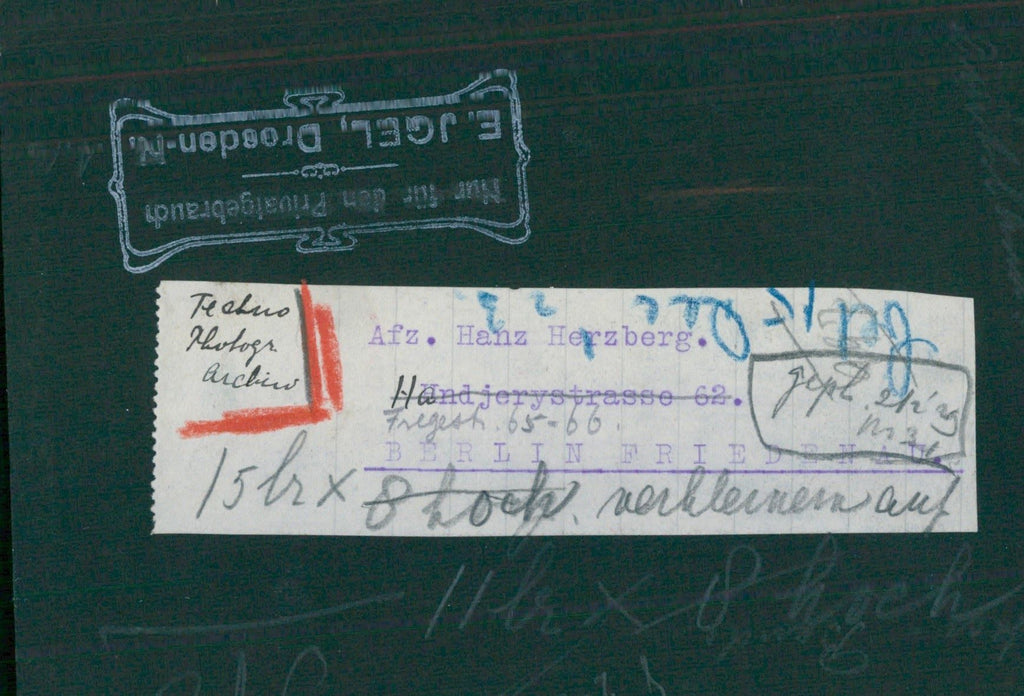 E. JGEL, Dresden-N.
Nur für den Privatgebrauch
Techno
Photogr.
Archiv
Afz. Hanz Herzberg.
Handjerystrasse 62.
Fregestr. 65-66.
BERLIN FRIEDENAU.
gepl.
15 br x 8 hoch. verkleinern auf
11 br x 8 hoch